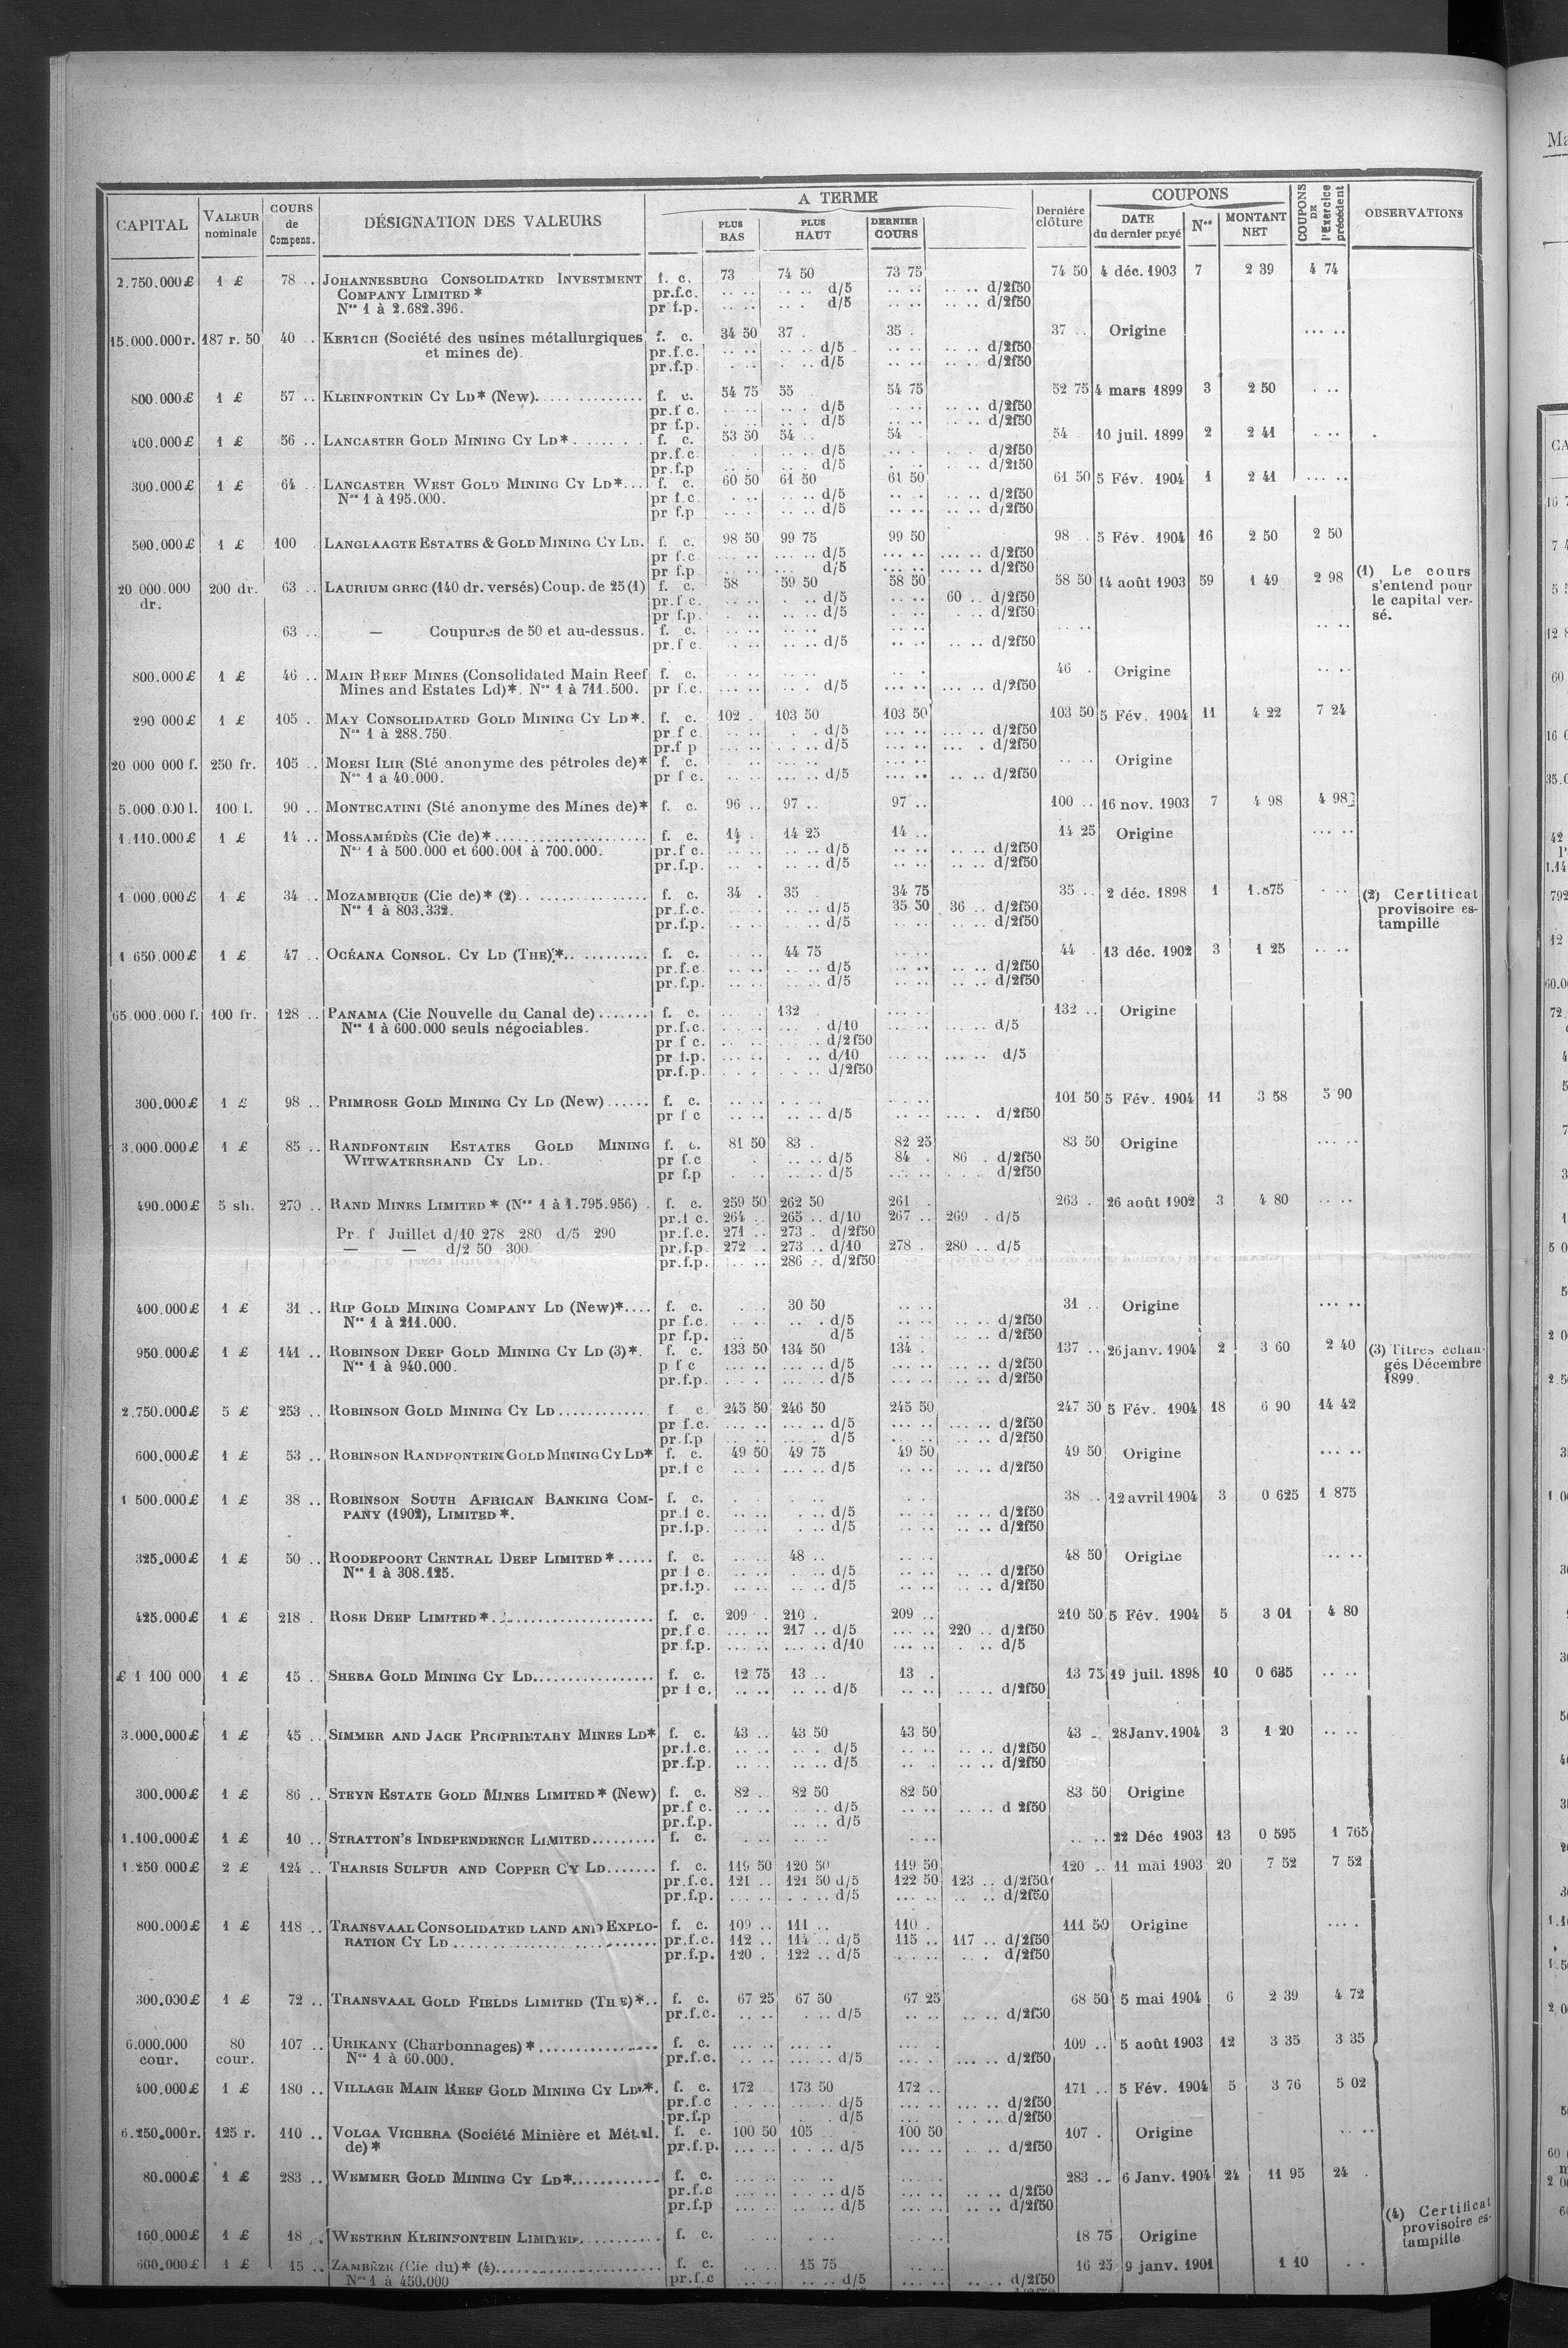 CAPITAL VALEUR nominale COURS de Compens. DÉSIGNATION DES VALEURS A TERME PLUS BAS PLUS HAUT DERNIER COURS Dernière clôture COUPONS DATE du dernier payé Nos MONTANT NET COUPONS DE l'Exercice précédent OBSERVATIONS
2.750.000£ 1 £ 78 .. JOHANNESBURG CONSOLIDATED INVESTMENT f. c. 73 74 50 73 75 74 50 4 déc. 1903 7 2 39 4 74
COMPANY LIMITED * pr.f.c. d/5 d/2f50
Nos 1 à 2.682.396. pr f.p. d/5 d/2f50
15.000.000r. 187 r. 50 40 .. KERTCH (Société des usines métallurgiques f. c. 34 50 37 . 35 . 37 .. Origine
et mines de). pr.f.c. d/5 d/2f50
pr.f.p. d/5 d/2f50
800.000£ 1 £ 57 .. KLEINFONTEIN CY LD* (New). f. c. 54 75 55 54 75 52 75 4 mars 1899 3 2 50
pr.f c. d/5 d/2f50
pr f.p. d/5 d/2f50
400.000£ 1 £ 56 .. LANCASTER GOLD MINING CY LD* f. c. 53 50 54 .. 54 54 10 juil. 1899 2 2 41
pr.f.c. d/5 d/2f50
pr.f.p d/5 d/2f50
300.000£ 1 £ 64 .. LANCASTER WEST GOLD MINING CY LD* f. c. 60 50 61 50 61 50 61 50 5 Fév. 1904 1 2 41
Nos 1 à 195.000. pr f.c. d/5 d/2f50
pr f.p d/5 d/2f50
500.000£ 1 £ 100 . LANGLAAGTE ESTATES & GOLD MINING CY LD. f. c. 98 50 99 75 99 50 98 .. 5 Fév. 1904 16 2 50 2 50
pr f.c d/5 d/2f50
pr f.p d/5 d/2f50
20 000.000 dr. 200 dr. 63 .. LAURIUM GREC (140 dr. versés) Coup. de 25 (1) f. c. 58 59 50 58 50 58 50 14 août 1903 59 1 49 2 98 (1) Le cours s'entend pour le capital versé.
pr.f c. d/5 60 .. d/2f50
pr f.p. d/5 d/2f50
63 .. — Coupures de 50 et au-dessus. f. c.
pr.f c. d/5 d/2f50
800.000£ 1 £ 46 .. MAIN REEF MINES (Consolidated Main Reef f. c. 46 . Origine
Mines and Estates Ld)*. Nos 1 à 711.500. pr f.c. d/5 d/2f50
290 000£ 1 £ 105 . MAY CONSOLIDATED GOLD MINING CY LD*. f. c. 102 . 103 50 103 50 103 50 5 Fév. 1904 11 4 22 7 24
Nos 1 à 288.750. pr f c d/5 d/2f50
pr.f p d/5 d/2f50
20 000 000 f. 250 fr. 105 .. MOESI ILIR (Sté anonyme des pétroles de)* f. c. Origine
Nos 1 à 40.000. pr f c. d/5 d/2f50
5.000.000 l. 100 l. 90 .. MONTECATINI (Sté anonyme des Mines de)* f. c. 96 .. 97 .. 97 .. 100 .. 16 nov. 1903 7 4 98 4 98
1.110.000£ 1 £ 14 .. MOSSAMÉDÈS (Cie de)* f. c. 14 . 14 25 14 .. 14 25 Origine
Nos 1 à 500.000 et 600.001 à 700.000. pr.f c. d/5 d/2f50
pr.f.p. d/5 d/2f50
1 000.000£ 1 £ 34 .. MOZAMBIQUE (Cie de)* (2) f. c. 34 . 35 34 75 35 .. 2 déc. 1898 1 1.875 (2) Certificat provisoire estampillé
Nos 1 à 803.332. pr.f.c. d/5 35 50 36 .. d/2f50
pr.f.p. d/5 d/2f50
1 650.000£ 1 £ 47 .. OCÉANA CONSOL. CY LD (THE)* f. c. 44 75 44 13 déc. 1902 3 1 25
pr.f.c. d/5 d/2f50
pr.f.p. d/5 d/2f50
65.000.000 f. 100 fr. 128 .. PANAMA (Cie Nouvelle du Canal de) f. c. 132 132 .. Origine
Nos 1 à 600.000 seuls négociables. pr.f.c. d/10 d/5
pr f c. d/2f50
pr f.p. d/10 d/5
pr.f.p. d/2f50
300.000£ 1 £ 98 .. PRIMROSE GOLD MINING CY LD (New) f. c. 101 50 5 Fév. 1904 11 3 58 5 90
pr f c d/5 d/2f50
3.000.000£ 1 £ 85 .. RANDFONTEIN ESTATES GOLD MINING f. c. 81 50 83 . 82 25 83 50 Origine
WITWATERSRAND CY LD. pr f.c d/5 84 . 86 . d/2f50
pr f.p d/5 d/2f50
490.000£ 5 sh. 270 .. RAND MINES LIMITED * (Nos 1 à 1.795.956) f. c. 259 50 262 50 261 . 263 . 26 août 1902 3 4 80
pr.f c. 264 .. 265 .. d/10 267 .. 269 . d/5
Pr. f Juillet d/10 278 280 d/5 290 pr.f.c. 271 .. 273 . d/2f50
— — d/2 50 300 pr.f.p. 272 .. 273 .. d/10 278 . 280 .. d/5
pr.f.p. 286 .. d/2f50
400.000£ 1 £ 31 .. RIP GOLD MINING COMPANY LD (New)* f. c. 30 50 31 .. Origine
Nos 1 à 211.000. pr f.c. d/5 d/2f50
pr f.p. d/5 d/2f50
950.000£ 1 £ 141 .. ROBINSON DEEP GOLD MINING CY LD (3)*. f. c. 133 50 134 50 134 . 137 .. 26 janv. 1904 2 3 60 2 40 (3) Titres échangés Décembre 1899.
Nos 1 à 940.000. p f c d/5 d/2f50
pr.f.p. d/5 d/2f50
2.750.000£ 5 £ 253 .. ROBINSON GOLD MINING CY LD f c. 245 50 246 50 245 50 247 50 5 Fév. 1904 18 6 90 14 42
pr f.c. d/5 d/2f50
pr.f.p d/5 d/2f50
600.000£ 1 £ 53 .. ROBINSON RANDFONTEIN GOLD MINING CY LD* f. c. 49 50 49 75 49 50 49 50 Origine
pr.f c d/5 d/2f50
1 500.000£ 1 £ 38 .. ROBINSON SOUTH AFRICAN BANKING COM- f. c. 38 .. 12 avril 1904 3 0 625 1 875
PANY (1902), LIMITED *. pr.f c. d/5 d/2f50
pr.f.p. d/5 d/2f50
325.000£ 1 £ 50 .. ROODEPOORT CENTRAL DEEP LIMITED* f. c. 48 .. 48 50 Origine
Nos 1 à 308.125. pr f c. d/5 d/2f50
pr.f.p. d/5 d/2f50
425.000£ 1 £ 218 . ROSE DEEP LIMITED* f. c. 209 . 210 . 209 .. 210 50 5 Fév. 1904 5 3 01 4 80
pr.f.c. 217 .. d/5 220 .. d/2f50
pr f.p. d/10 d/5
£ 1 100 000 1 £ 15 .. SHEBA GOLD MINING CY LD f. c. 12 75 13 .. 13 . 13 75 19 juil. 1898 10 0 635
pr f c. d/5 d/2f50
3.000.000£ 1 £ 45 .. SIMMER AND JACK PROPRIETARY MINES LD* f. c. 43 .. 43 50 43 50 43 .. 28 Janv. 1904 3 1 20
pr.f.c. d/5 d/2f50
pr.f.p. d/5 d/2f50
300.000£ 1 £ 86 .. STEYN ESTATE GOLD MINES LIMITED* (New) f. c. 82 .. 82 50 82 50 83 50 Origine
pr.f c. d/5 d 2f50
pr.f.p. d/5
1.100.000£ 1 £ 10 .. STRATTON'S INDEPENDENCE LIMITED f. c. 22 Déc 1903 13 0 595 1 765
1.250.000£ 2 £ 124 .. THARSIS SULFUR AND COPPER CY LD f. c. 119 50 120 50 119 50 120 .. 11 mai 1903 20 7 52 7 52
pr.f.c. 121 .. 121 50 d/5 122 50 123 .. d/2f50
pr.f.p. d/5 d/2f50
800.000£ 1 £ 118 .. TRANSVAAL CONSOLIDATED LAND AND EXPLO- f. c. 109 .. 111 .. 110 . 111 50 Origine
RATION CY LD pr.f.c. 112 .. 114 .. d/5 115 .. 117 .. d/2f50
pr.f.p. 120 . 122 .. d/5 d/2f50
300.000£ 1 £ 72 .. TRANSVAAL GOLD FIELDS LIMITED (THE)* f. c. 67 25 67 50 67 25 68 50 5 mai 1904 6 2 39 4 72
pr.f.c. d/5 d/2f50
6.000.000 cour. 80 cour. 107 .. URIKANY (Charbonnages)* f. c. 109 .. 5 août 1903 12 3 35 3 35
Nos 1 à 60.000. pr.f.c. d/5 d/2f50
400.000£ 1 £ 180 .. VILLAGE MAIN REEF GOLD MINING CY LD*. f. c. 172 173 50 172 .. 171 .. 5 Fév. 1904 5 3 76 5 02
pr.f.c d/5 d/2f50
pr.f.p d/5 d/2f50
6.250.000r. 125 r. 110 .. VOLGA VICHERA (Société Minière et Métal. f. c. 100 50 105 100 50 107 . Origine
de)* pr.f.p. d/5 d/2f50
80.000£ 1 £ 283 .. WEMMER GOLD MINING CY LD* f. c. 283 .. 6 Janv. 1904 24 11 95 24 .
pr.f.c d/5 d/2f50
pr.f.p d/5 d/2f50
160.000£ 1 £ 18 . WESTERN KLEINFONTEIN LIMITED f. c. 18 75 Origine (4) Certificat provisoire estampillé.
600.000£ 1 £ 15 .. ZAMBÈZE (Cie du)* (4) f. c. 15 75 16 25 9 janv. 1901 1 10
Nos 1 à 450.000 pr.f.c d/5 d/2f50